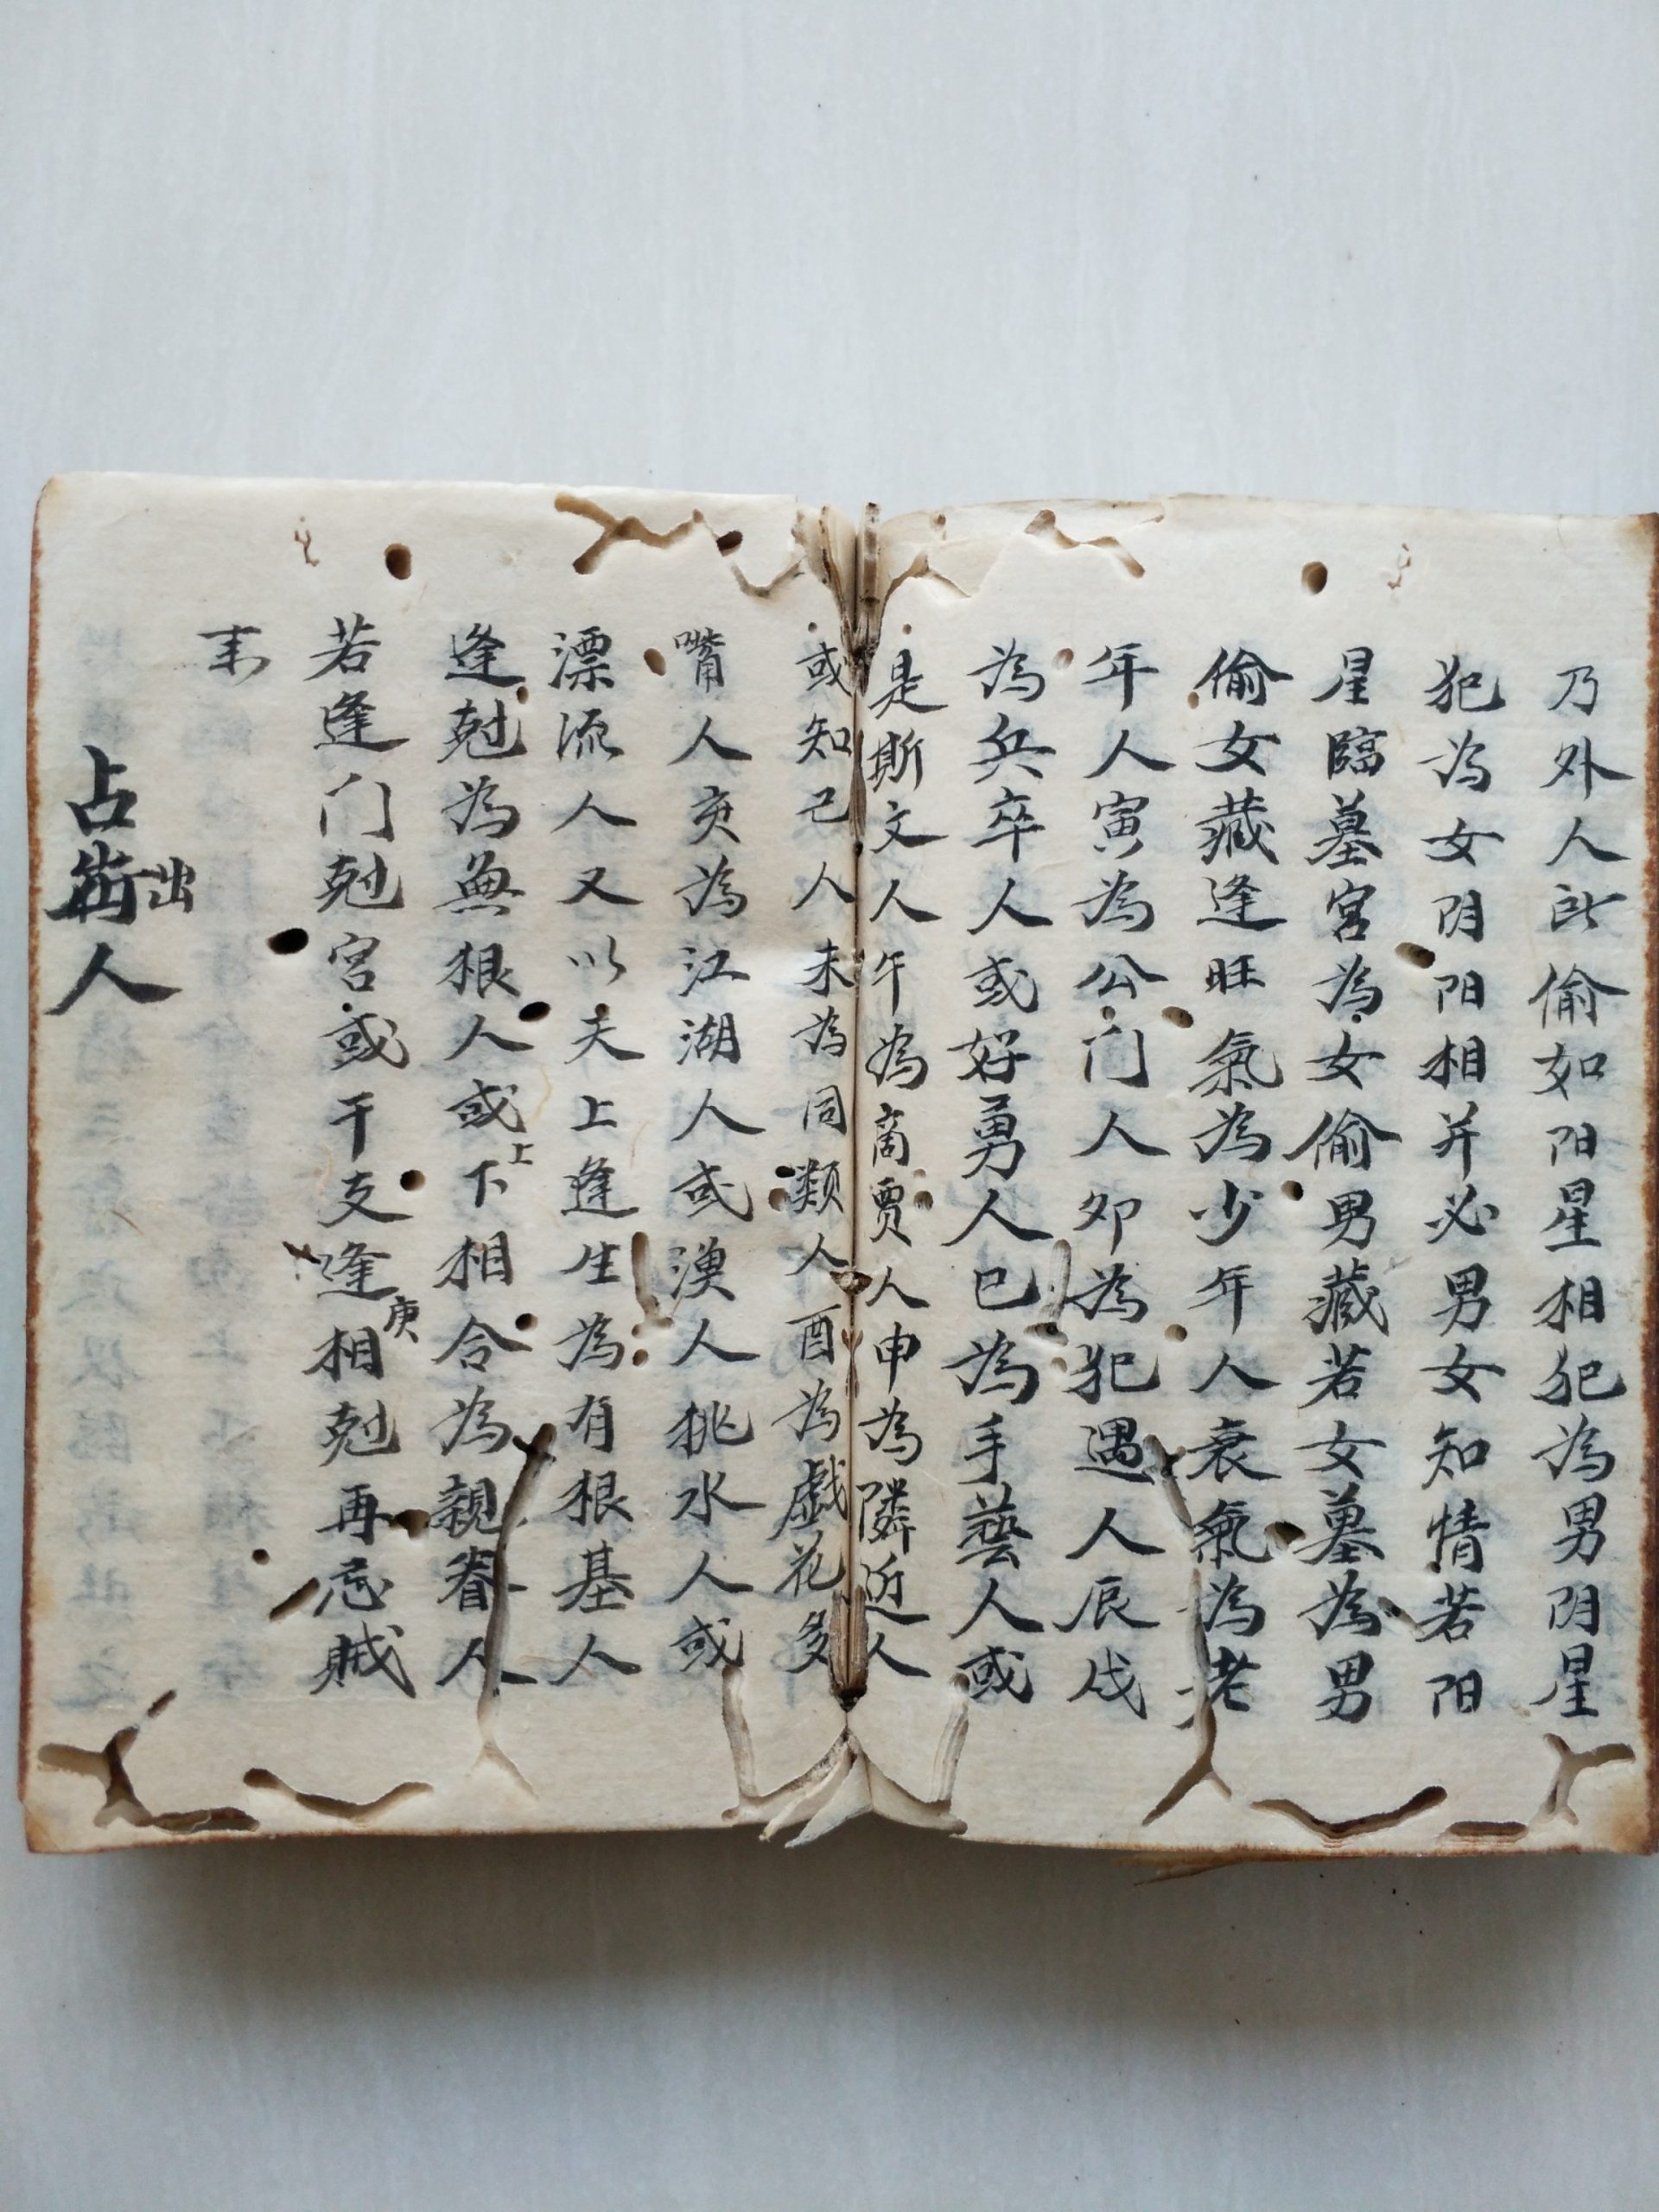 乃外人所偷如阳星相犯為男阴星
犯為女阴阳相并必男女知情若阳
星臨墓宮為女偷男藏若女墓為男
偷女藏逢旺氣為少年人衰氣為老
年人寅為公门人卯為犯遇人辰戌
為兵卒人或好勇人巳為手藝人或
是斯文人午為商賈人申為隣近人
或知己人未為同類人酉為戲花多
嘴人亥為江湖人或漁人挑水人或
漂流人又以夫上逢生為有根基人
逢尅為無根人或下上相合為親眷人
若逢门尅宮或干支逢庚相尅再忌賊
来
占出人